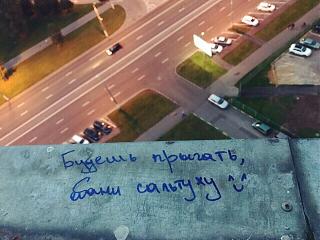 Будешь прыгать,
бани сальтуху